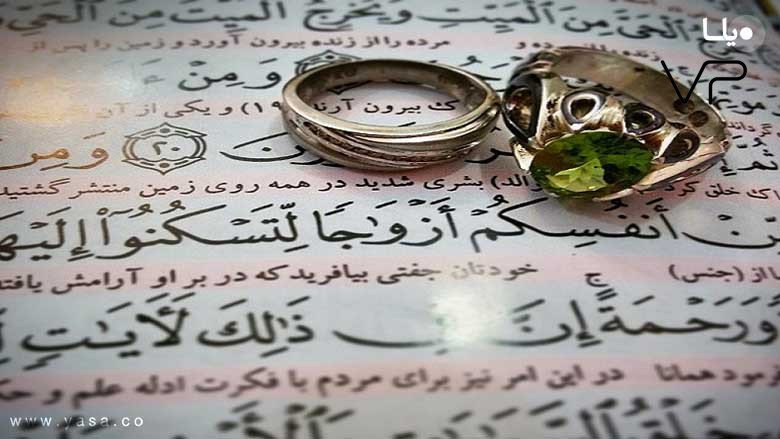 ٱلْحَىَّ مِنَ ٱلْمَيِّتِ وَيُخْرِجُ ٱلْمَيِّتَ مِنَ ٱلْحَىِّ
ویلا
VP
مرده را از زنده بیرون آورد و زمین را پس از
وَمِنْ
بیرون آرند (۱۹) و یکی از آن
ثُمَّ ۲۰ وَمِنْ
خلق کرد بشری شدید در همه روی زمین منتشر گشتید
أَنفُسِكُمْ أَزْوَٰجًا لِّتَسْكُنُوٓا۟ إِلَيْهَا
از (جنس) خودتان جفتی بیافرید که در بر او آرامش یافته
وَرَحْمَةً إِنَّ فِى ذَٰلِكَ لَـَٔايَـٰتٍ
همانا در این امر نیز برای مردم با فکرت ادله علم و
www.yasa.co